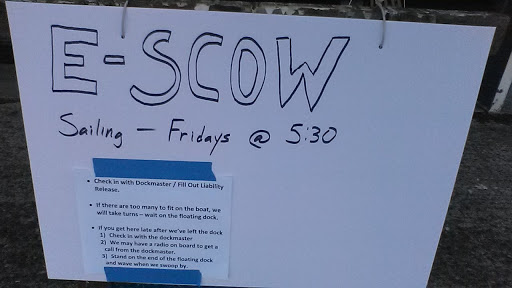 E-SCOW
Sailing – Fridays @ 5:30
• Check in with Dockmaster / Fill Out Liability
Release.
• If there are too many to fit on the boat, we
will take turns – wait on the floating dock.
• If you get here late after we've left the dock
1) Check in with the dockmaster
2) We may have a radio on board to get a
call from the dockmaster.
3) Stand on the end of the floating dock
and wave when we swoop by.